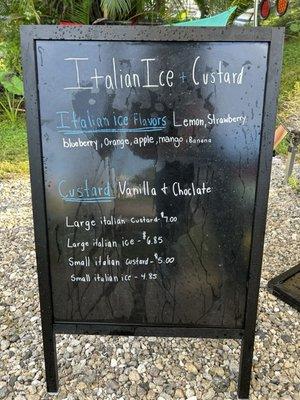 Italian Ice + Custard
Italian ice Flavors Lemon, Strawberry
blueberry, Orange, apple, mango, Banana
Custard Vanilla + Choclate
Large italian custard - $7.00
Large italian ice - $6.85
Small italian custard - $5.00
Small italian ice - 4.85